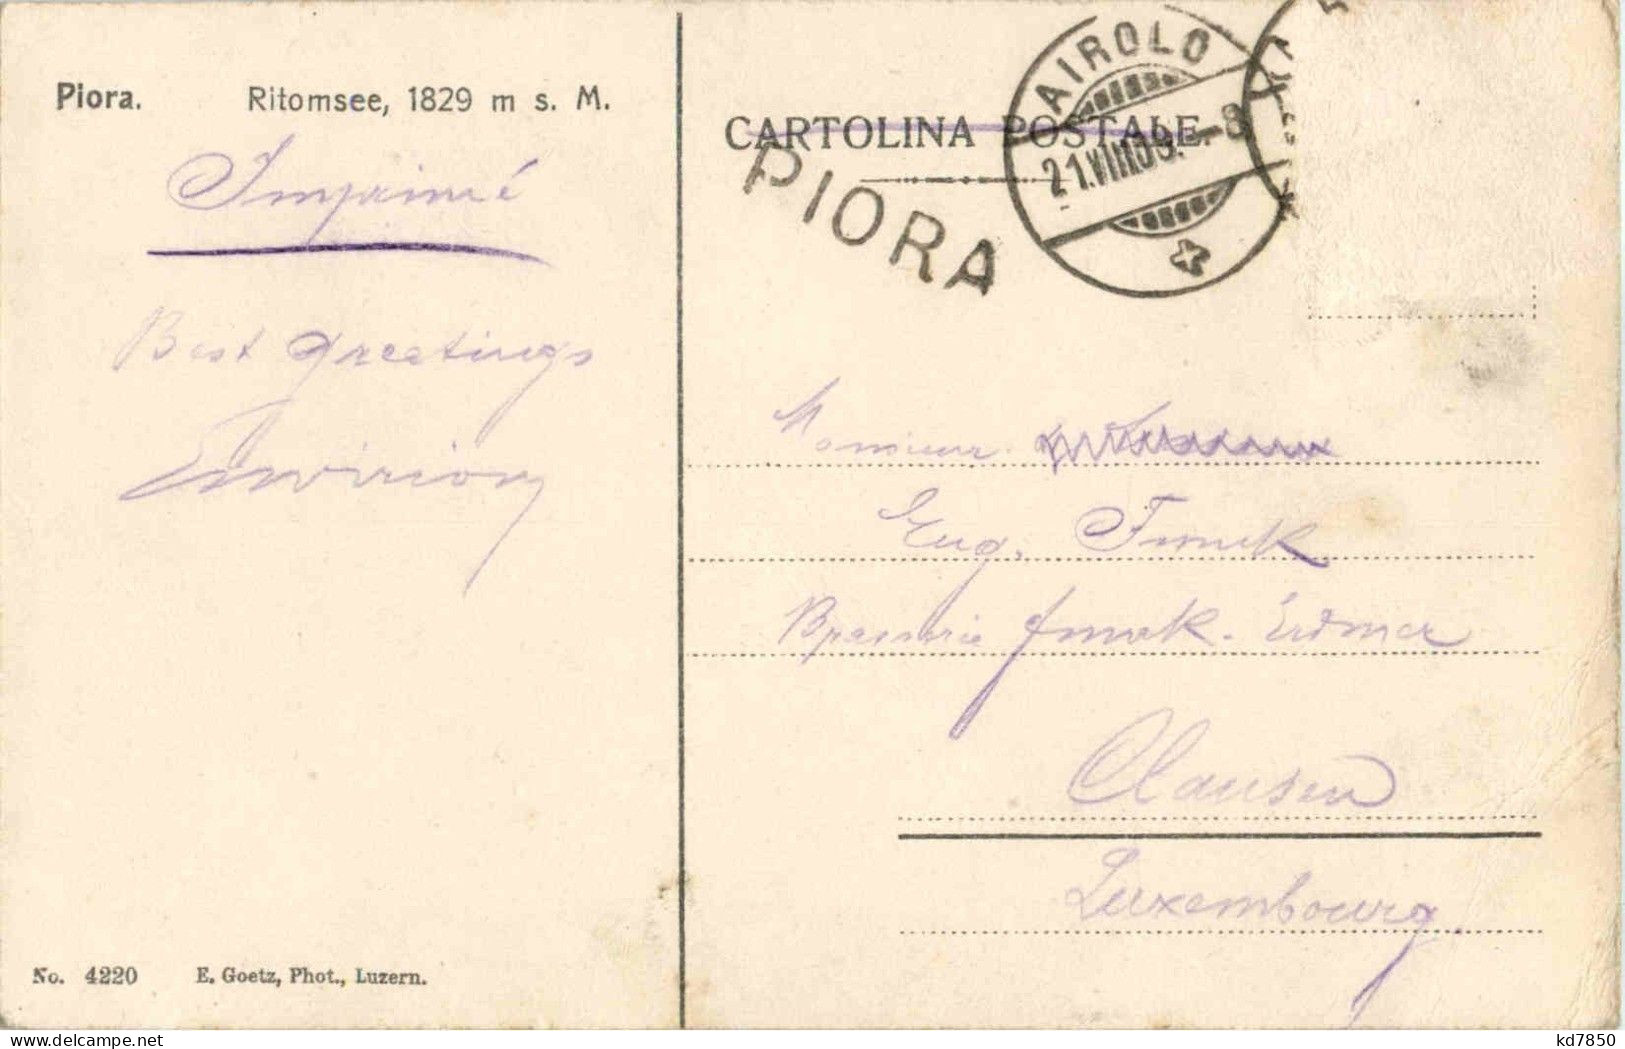 Piora. Ritomsee, 1829 m s. M.
Imprimé
Best greetings
No. 4220 E. Goetz, Phot., Luzern.
CARTOLINA POSTALE.
PIORA
AIROLO
21.VIII.09.-8
Monsieur
Eug. Funck
Brasserie Funck-
Clausen
Luxembourg
kd7850